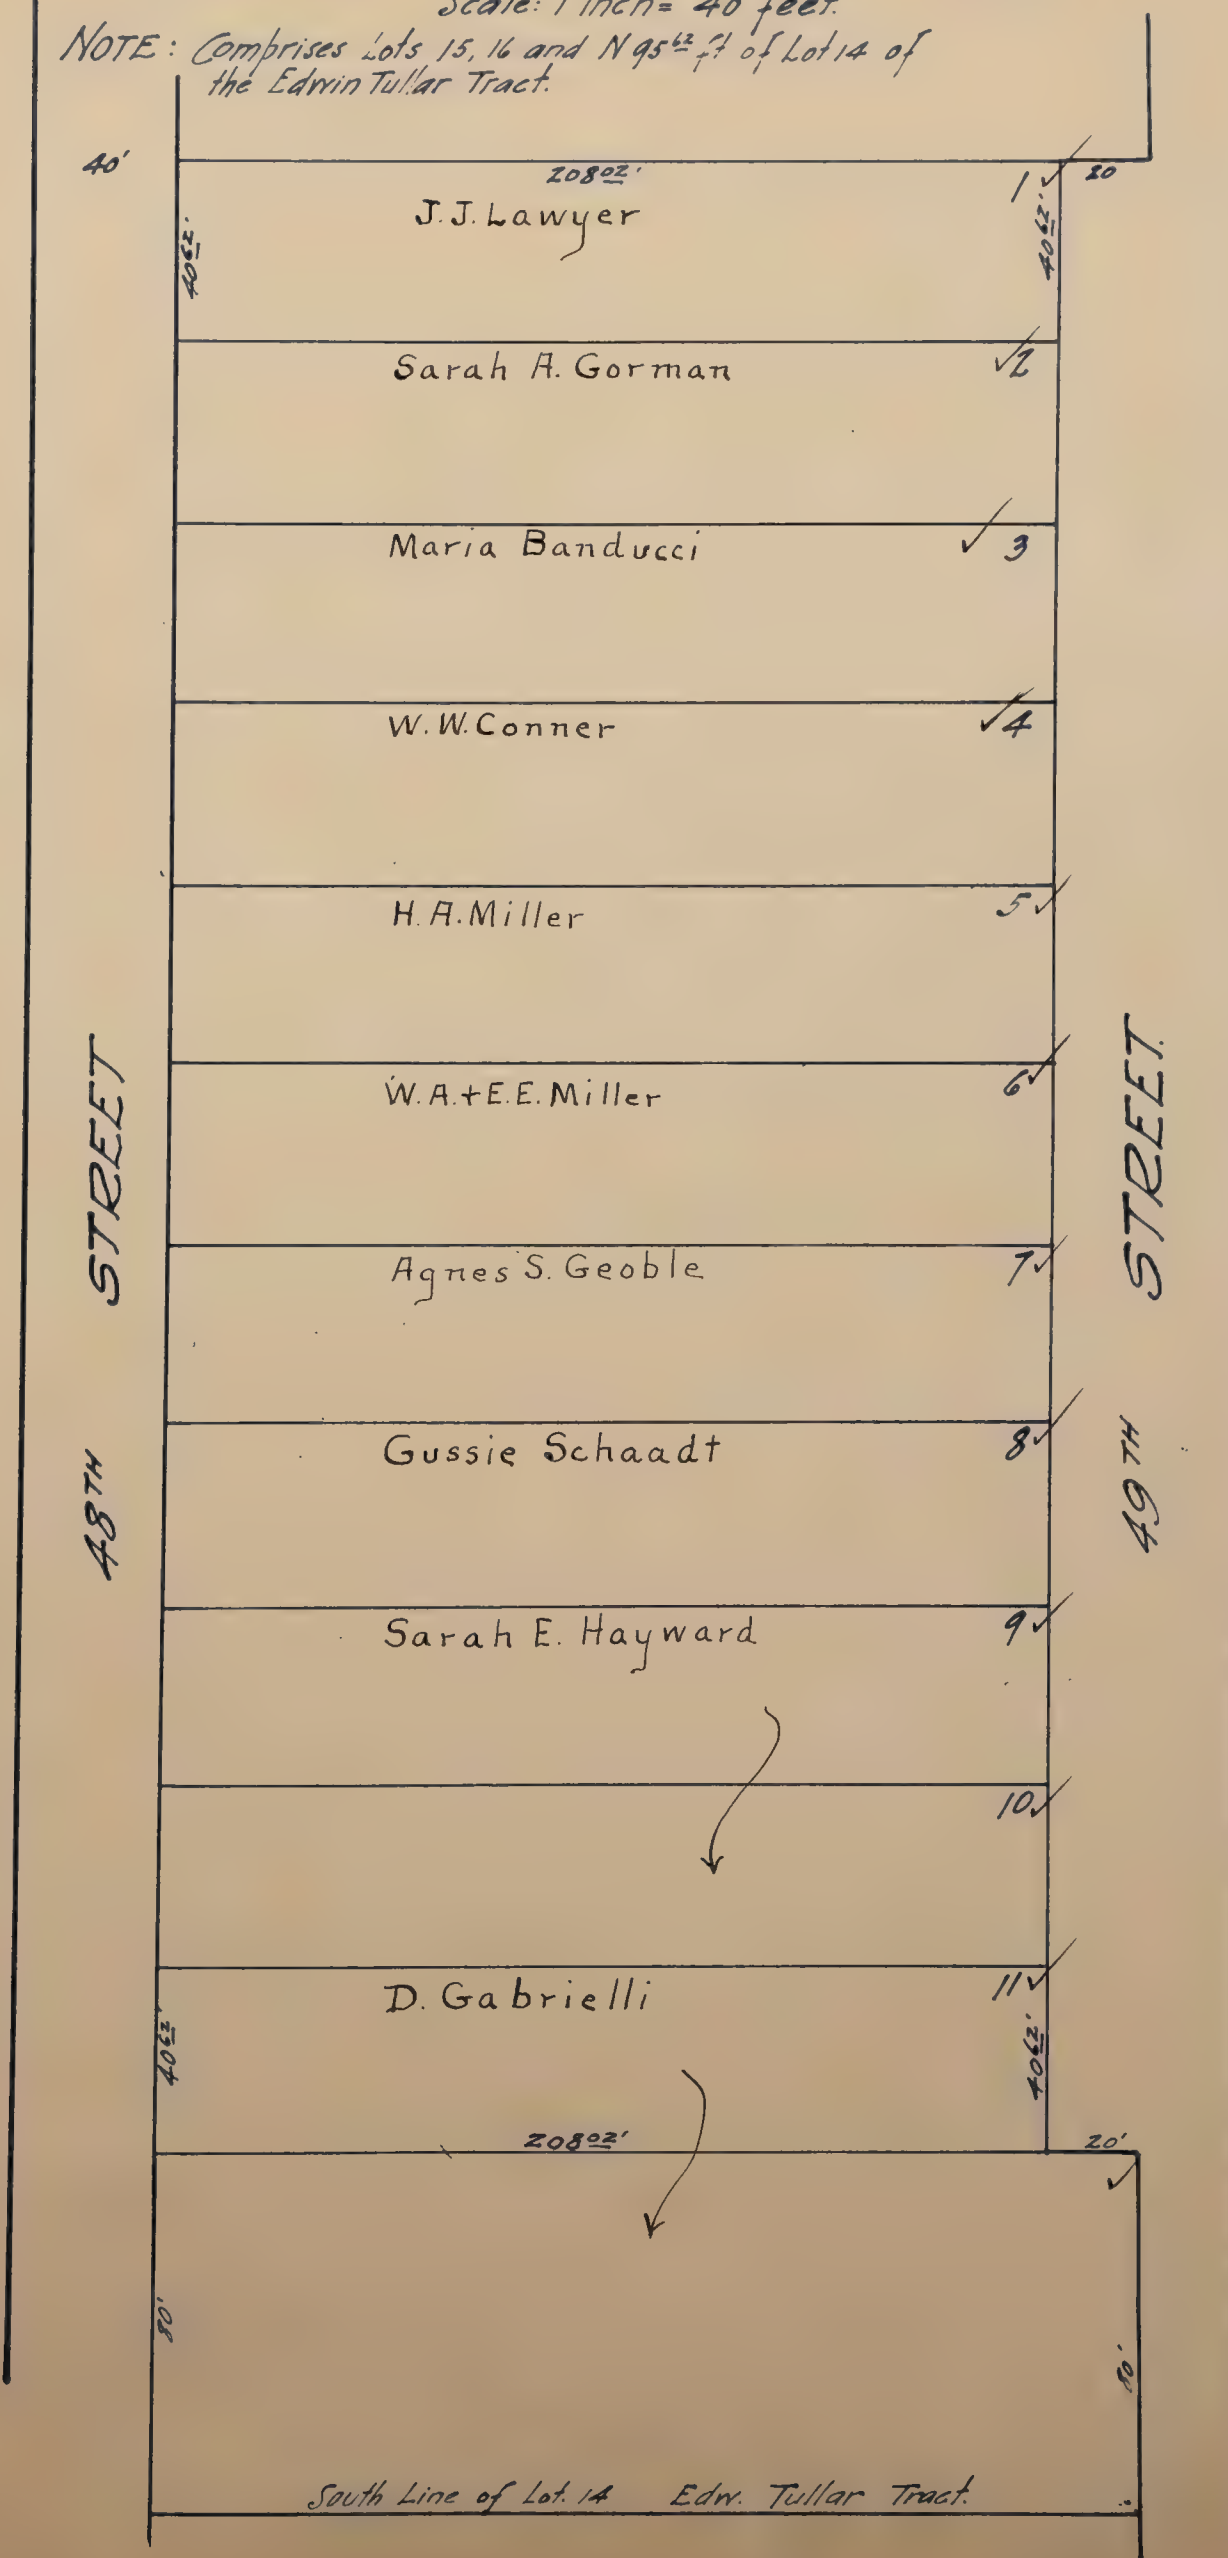 Scale: 1 inch = 40 feet.
NOTE: Comprises Lots 15, 16 and N 95 62 ft of Lot 14 of
the Edwin Tullar Tract.
40'
208 02'
1
20
J. J. Lawyer
40 62'
40 62'
Sarah A. Gorman
2
Maria Banducci
3
W. W. Conner
4
H. A. Miller
5
W. A. + E. E. Miller
6
Agnes S. Geoble
7
Gussie Schaadt
8
Sarah E. Hayward
9
10
D. Gabrielli
11
40 62'
40 62'
208 02'
20'
80'
80'
South Line of Lot. 14 Edw. Tullar Tract.
48TH STREET
49TH STREET.